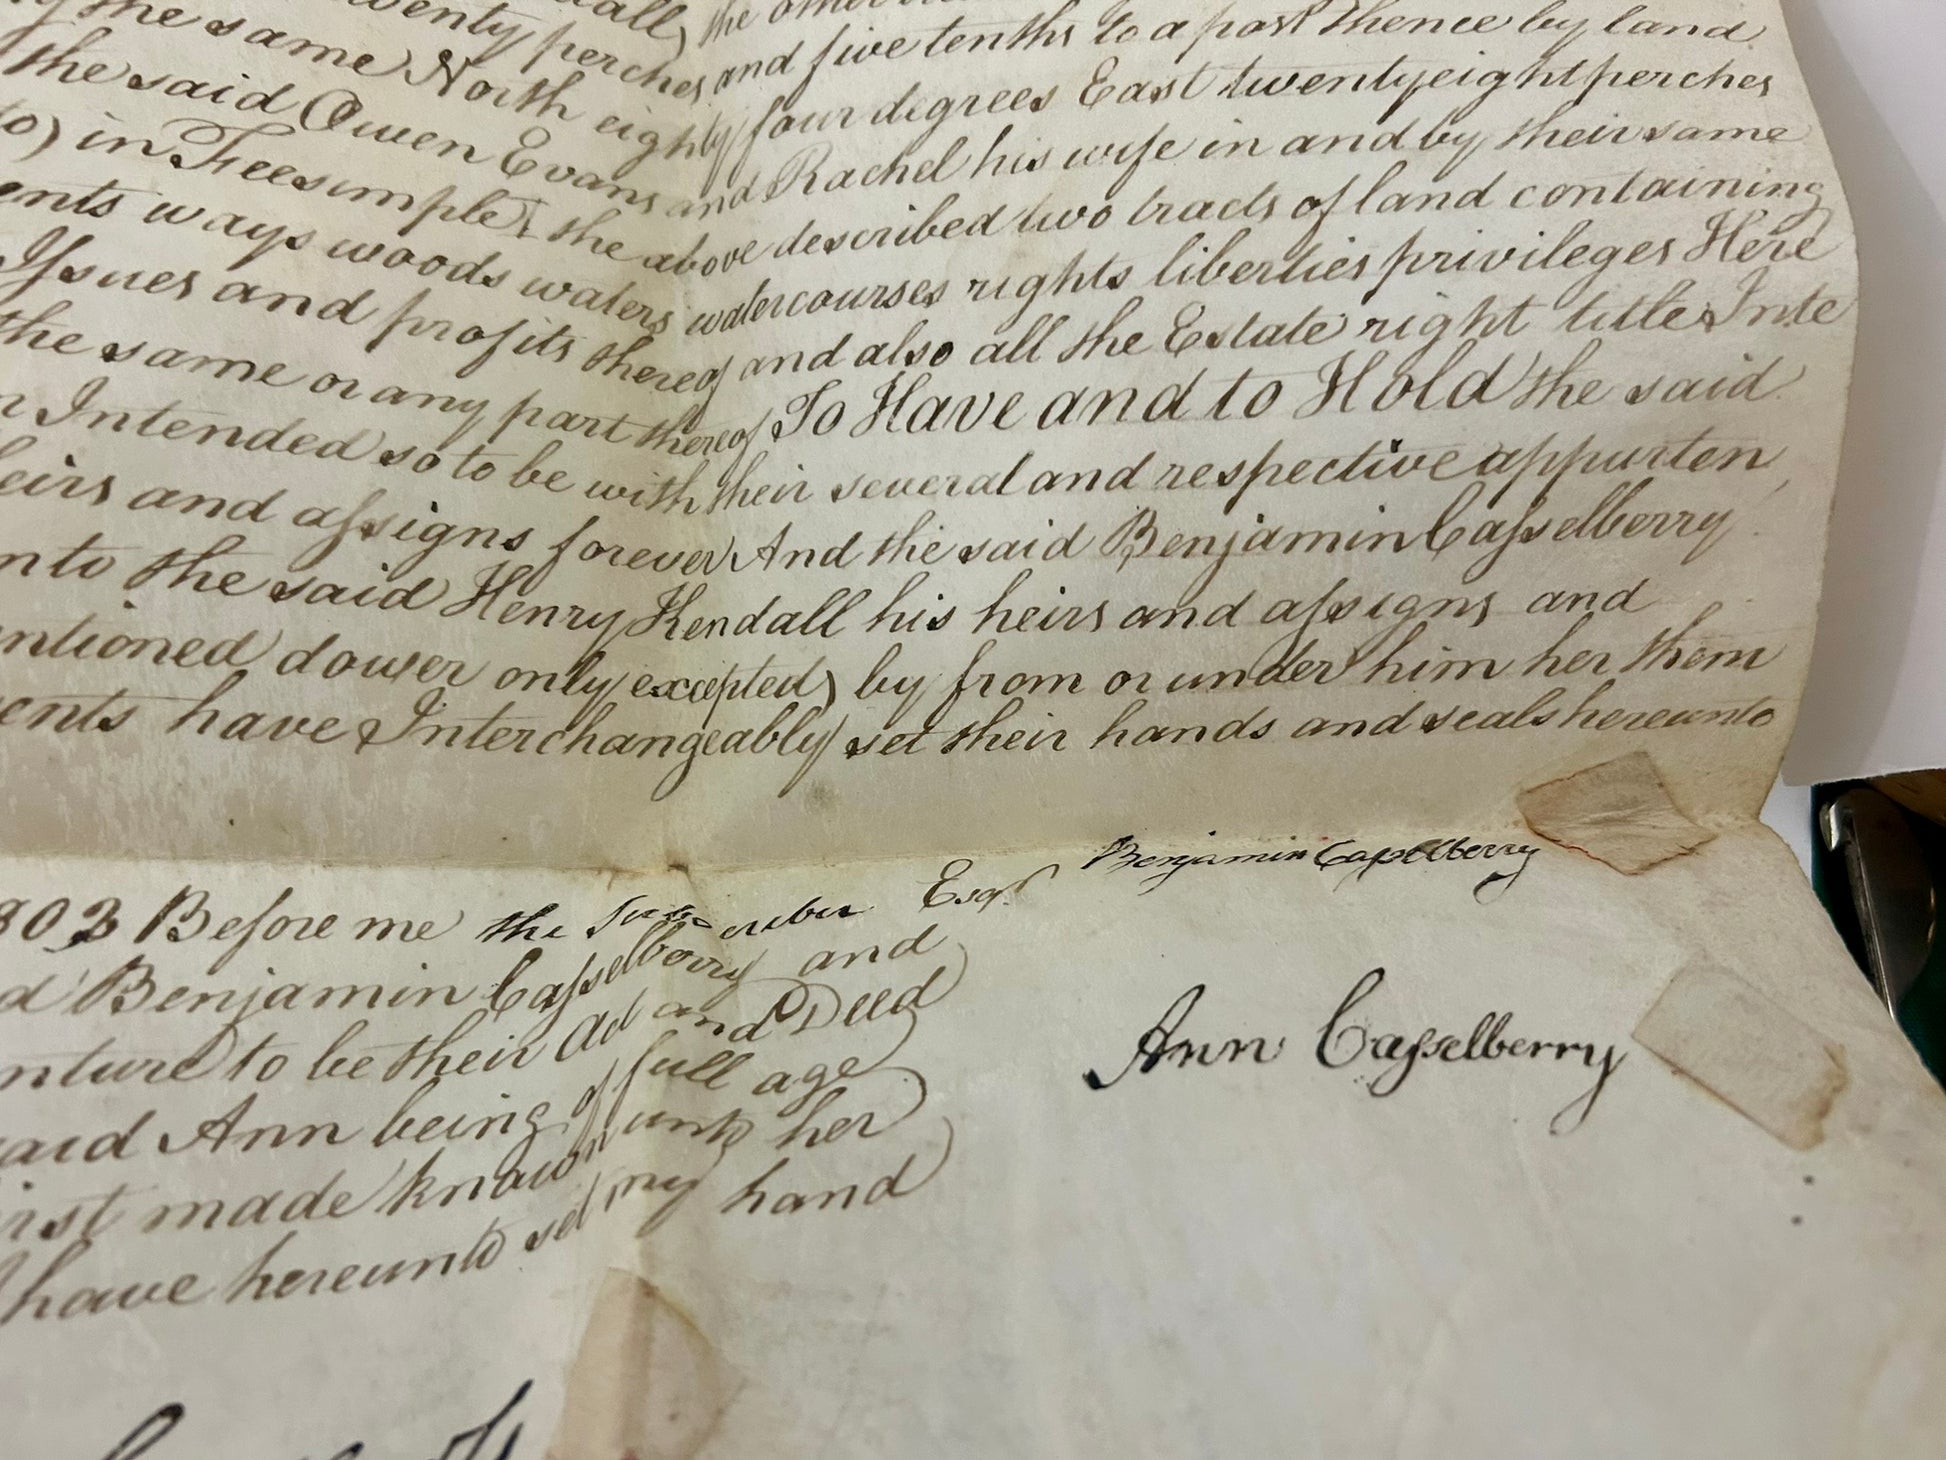 the same North eighty four degrees East twentyeight perches
twenty perches and five tenths to a post thence by land
the said Owen Evans and Rachel his wife in and by their same
to) in Feesimple, the above described two tracts of land containing
ents ways woods waters watercourses rights liberties privileges Here
Issues and profits thereof and also all the Estate right title Inte
the same or any part thereof To Have and to Hold the said
Intended so to be with their several and respective appurten
eirs and assigns forever And the said Benjamin Casselberry
nto the said Henry Kendall his heirs and assigns and
ntioned dower only excepted) by from or under him her them
ents have Interchangeably set their hands and seals hereunto
Benjamin Casselberry
803 Before me the Subscriber Esqr
d Benjamin Casselberry and
nture to be their Act and Deed
Ann Casselberry
aid Ann being of full age
irst made known unto her
have hereunto set my hand